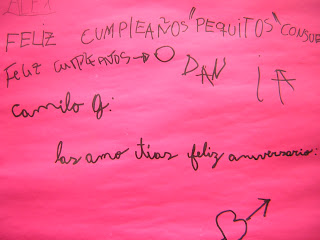 ALEX
FELIZ CUMPLEAÑOS "PEQUITOS" CONSUE
FELIZ CUMPLEAÑOS → O DAN IA
Camilo G.
las amo tías feliz aniversario.